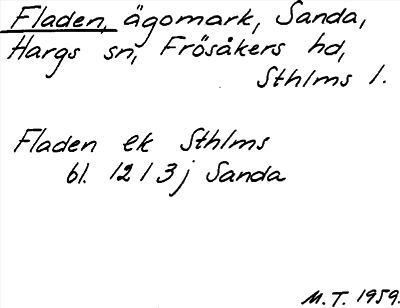 Fladen, ägomark, Sanda,
Hargs sn, Frösåkers hd,
Sthlms l.
Fladen ek Sthlms
bl. 12 I 3 j Sanda
M.T. 1959.